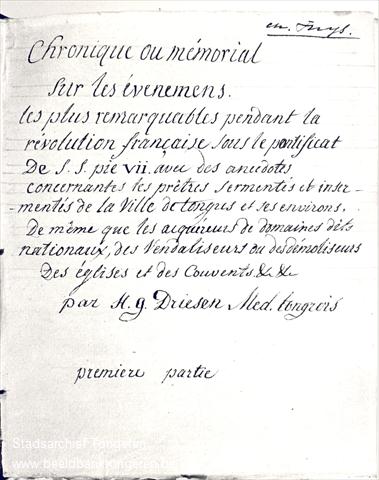 Chronique ou mémorial
sur les évenemens.
les plus remarquables pendant la
révolution française sous le pontificat
De S. S. pie vii. avec des anecdotes
concernantes les prêtres sermentés et inser-
-mentés de la Ville de tongres et ses environs.
De même que les acquireurs de domaines dits
nationaux, des Vendaliseurs ou des démoliseurs
Des églises et des Couvents. & &
par H. g. Driesen Med. tongrois
premiere partie
Stadsarchief Tongeren
www.beeldbanktongeren.be